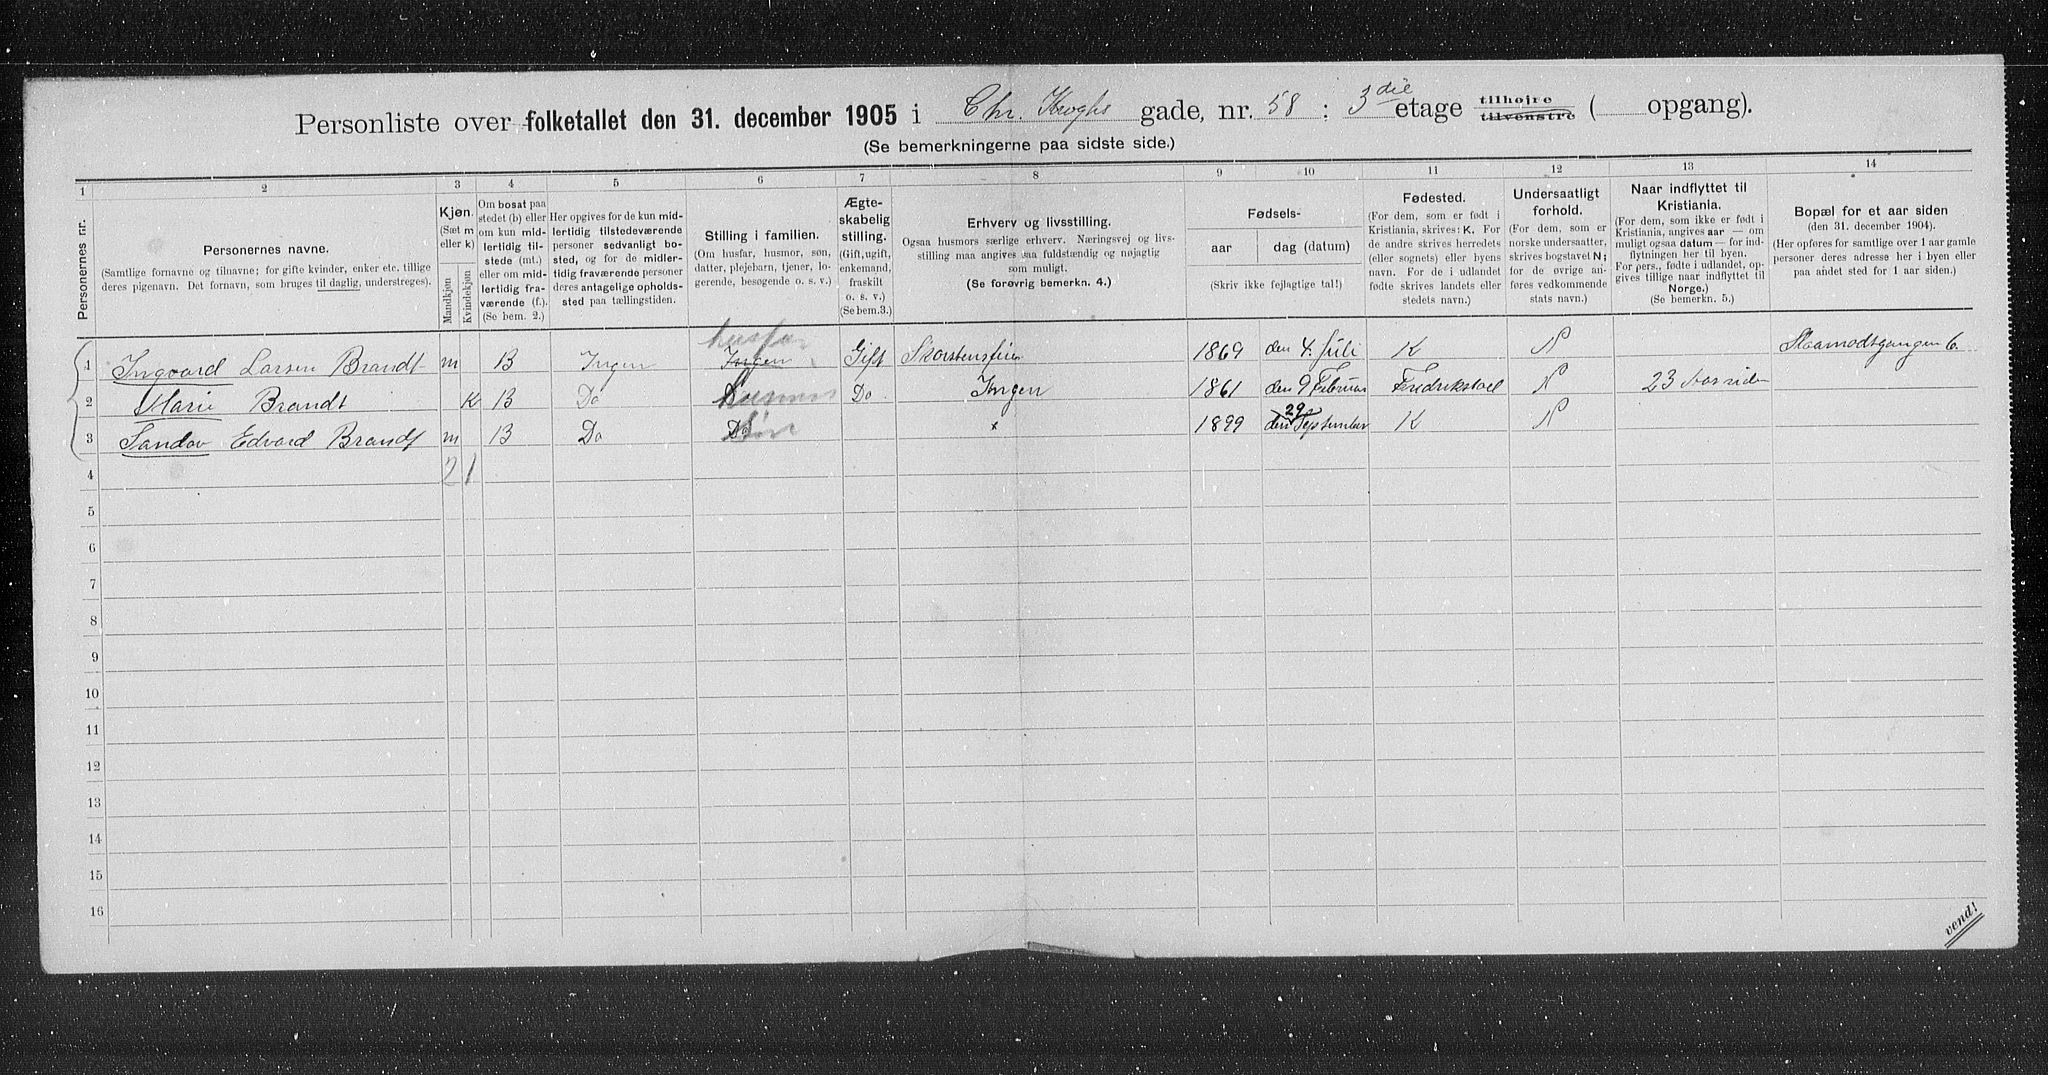 Personliste over folketallet den 31. december 1905 i Chr. Kroghs gade, nr. 58 : 3die etage tilhøjre tilvenstre ( opgang).
(Se bemerkningerne paa sidste side.)
1 2 3 4 5 6 7 8 9 10 11 12 13 14
Personernes nr.
Personernes navne.
(Samtlige fornavne og tilnavne; for gifte kvinder, enker etc. tillige
deres pigenavn. Det fornavn, som bruges til daglig, understreges).
Kjøn.
(Sæt m
eller k)
Mandkjøn
Kvindekjøn
Om bosat paa
stedet (b) eller
om kun mid-
lertidig til-
stede (mt.)
eller om mid-
lertidig fra-
værende (f.).
(Se bem. 2.)
Her opgives for de kun mid-
lertidig tilstedeværende
personer sedvanligt bo-
sted, og for de midler-
tidig fraværende personer
deres antagelige opholds-
sted paa tællingstiden.
Stilling i familien.
(Om husfar, husmor, søn,
datter, plejebarn, tjener, lo-
gerende, besøgende o. s. v.)
Ægte-
skabelig
stilling.
(Gift, ugift,
enkemand,
fraskilt
o. s. v.)
(Se bem.3.)
Erhverv og livsstilling.
Ogsaa husmors særlige erhverv. Næringsvej og livs-
stilling maa angives saa fuldstændig og nøjagtig
som muligt.
(Se forøvrig bemerkn. 4.)
Fødsels-
aar
dag (datum)
(Skriv ikke fejlagtige tal!)
Fødested.
(For dem, som er født i
Kristiania, skrives: K. For
de andre skrives herredets
(eller sognets) eller byens
navn. For de i udlandet
fødte skrives landets eller
stedets navn.)
Undersaatligt
forhold.
(For dem, som er
norske undersaatter,
skrives bogstavet N;
for de øvrige an-
føres vedkommende
stats navn.)
Naar indflyttet til
Kristiania.
(For dem, som ikke er født i
Kristiania, angives aar — om
muligt ogsaa datum — for ind-
flytningen her til byen.
For pers., fødte i udlandet, op-
gives tillige naar indflyttet til
Norge.)
(Se bemerkn. 5.)
Bopæl for et aar siden
(den 31. december 1904).
(Her opføres for samtlige over 1 aar gamle
personer deres adresse her i byen eller
paa andet sted for 1 aar siden.)
husfar
1 Ingvard Larsen Brandt m B Ingen Ingen Gift Skorstensfeier 1869 den 4. Juli K N 6.
2 Marie Brandt K B Do husmor Do Ingen 1861 den 9 Februar Fredrikstad N 23 Aar siden
3 Sandov Edvard Brandt m B Do Do Søn 1899 den 29 September K N
4 2 1
5
6
7
8
9
10
11
12
13
14
15
16
vend!